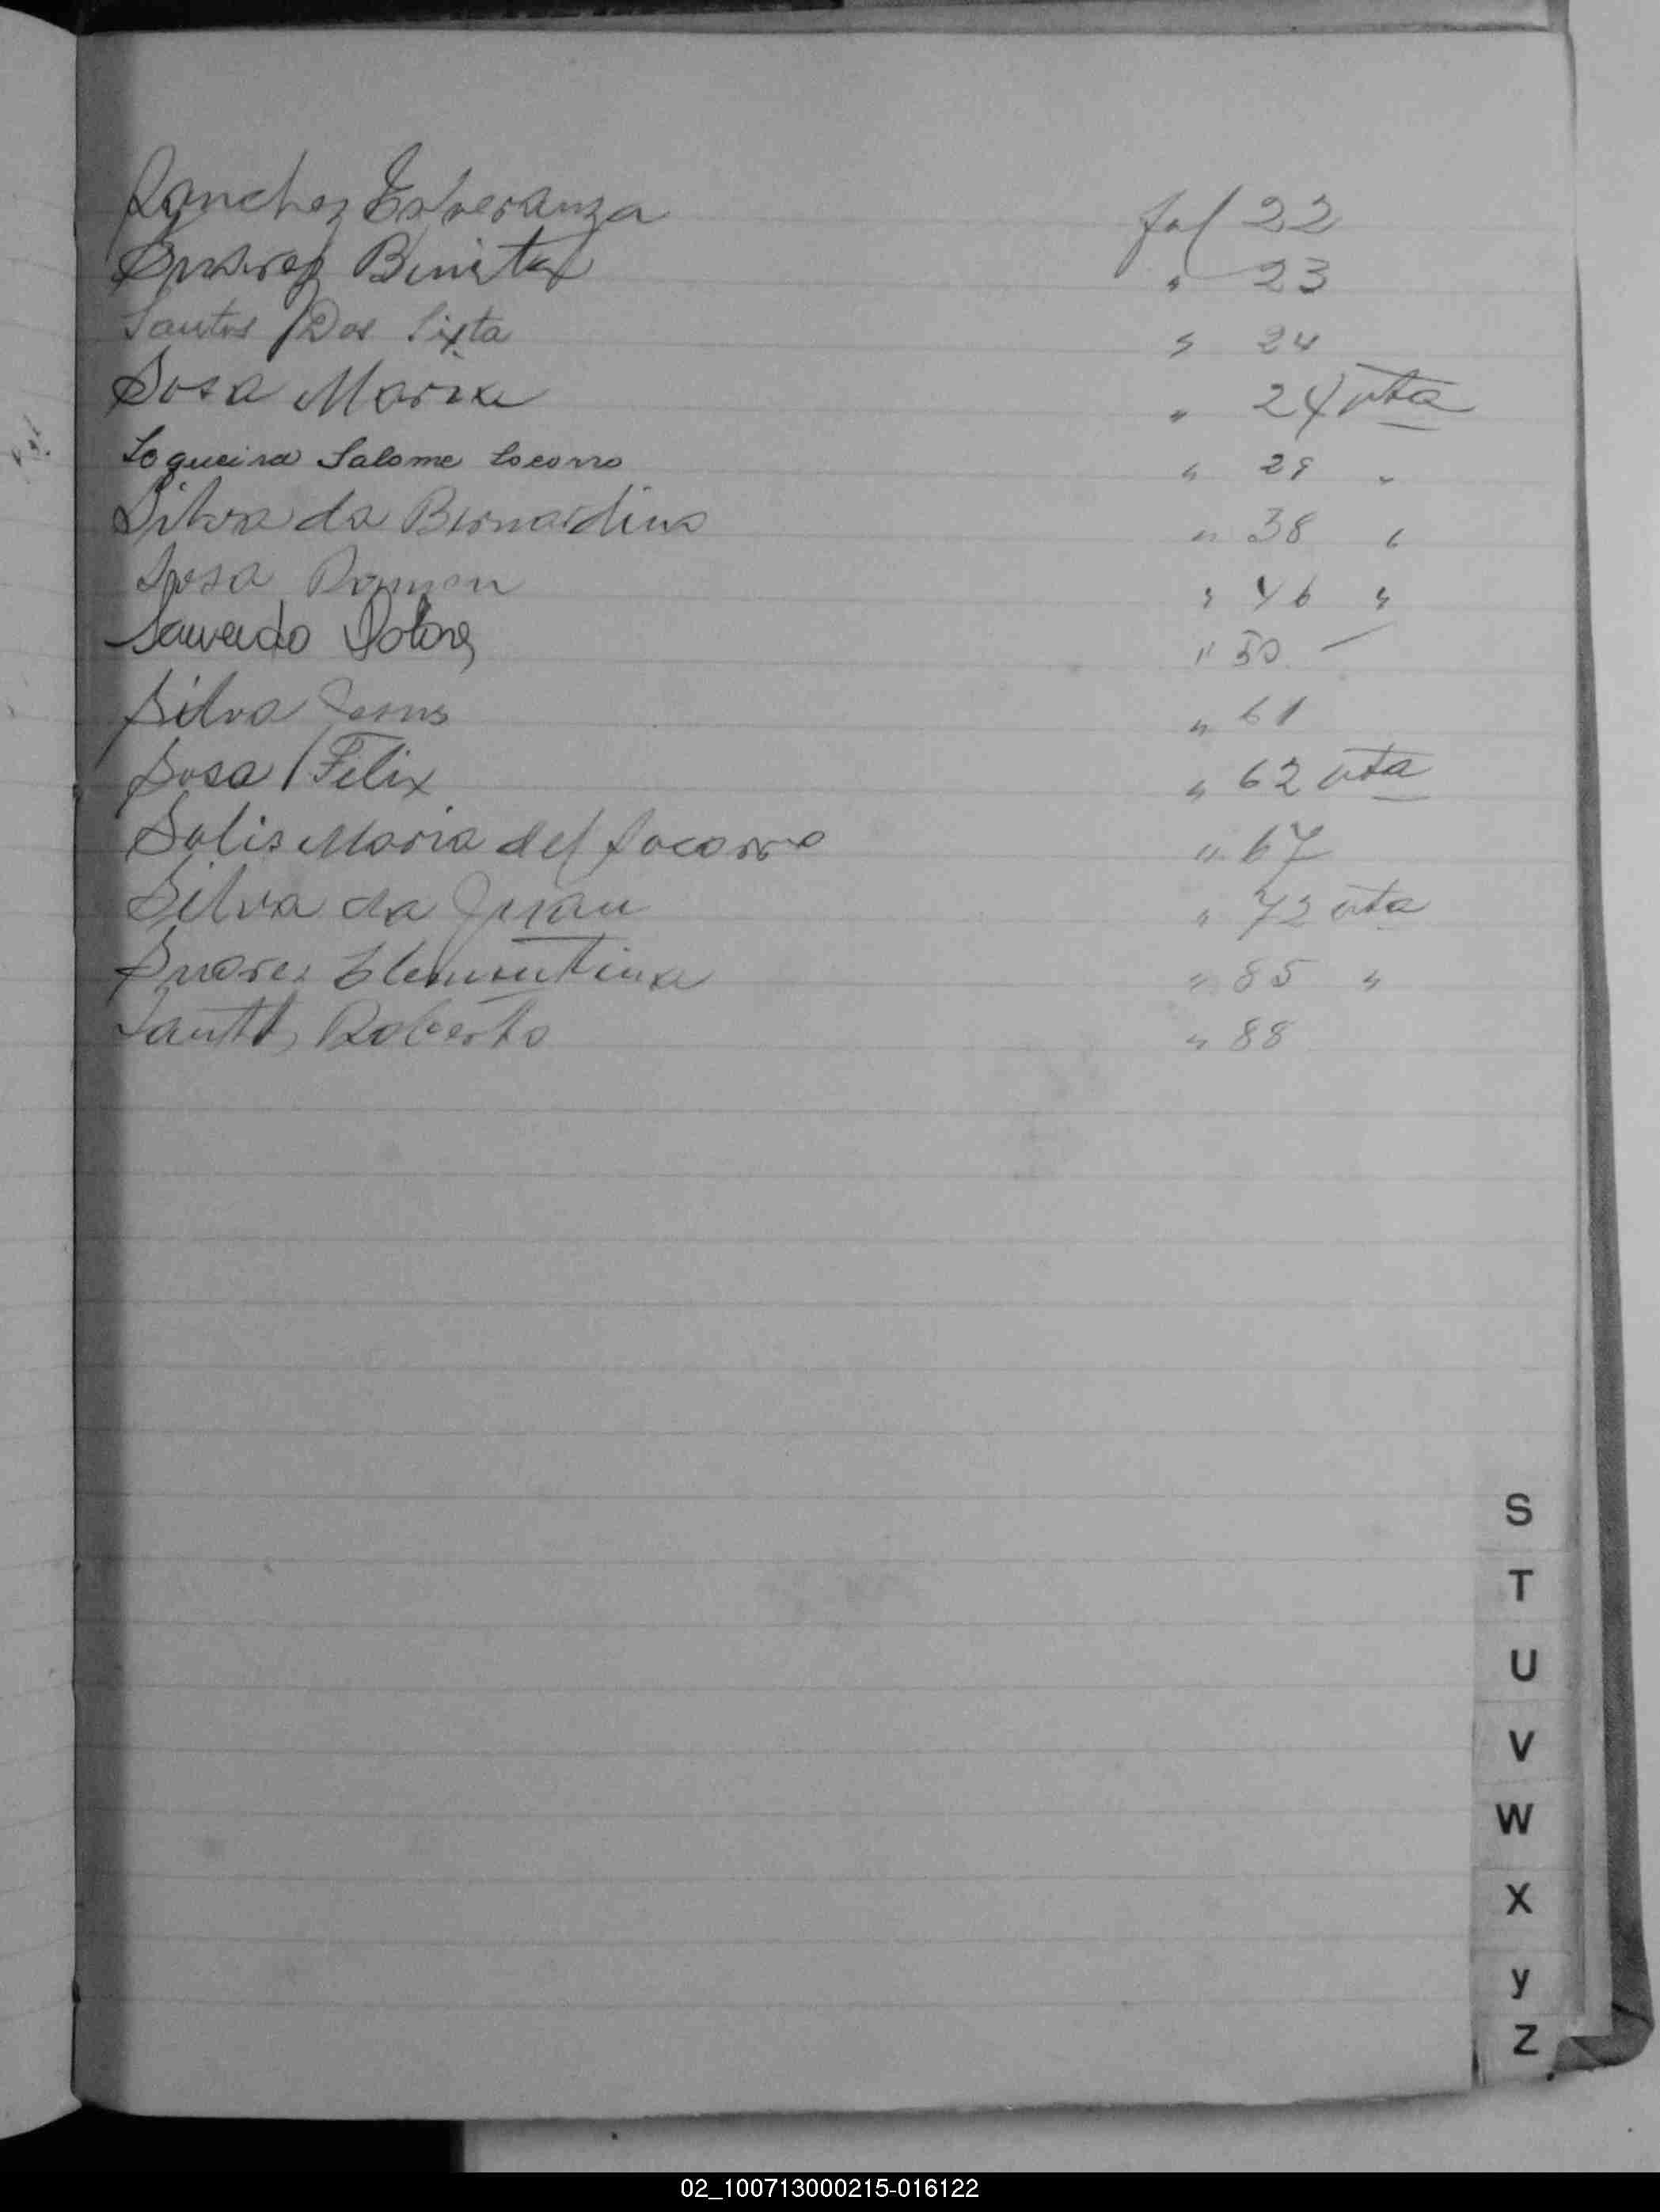 Sanchez Esperanza fol 22
Suarez Benita " 23
Santos Dos Sixta " 24
Sosa Maria " 24 vta
Soqueira Salome Socorro " 29 "
Silva da Bernardino " 38 "
Sosa Ramon " 46 "
Saucedo Dolores " 50 —
Silva Jesus " 61
Sosa Felix " 62 vta
Solis Maria del Socorro " 67
Silva da Juan " 72 vta
Suares Clementina " 85 "
Roberto " 88
S
T
U
V
W
X
y
Z
02_100713000215-016122